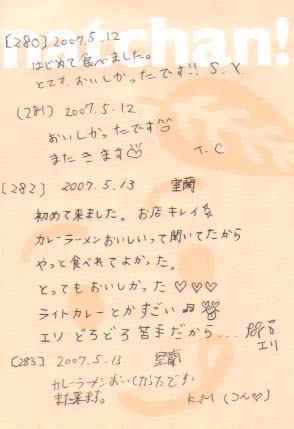 natchan!
[280] 2007.5.12
はじめて食べました。
とても、おいしかったです!! S.Y.
(281) 2007.5.12.
おいしかったです
またきます T.C
[282] 2007.5.13 室蘭
初めて来ました。お店キレイ
カレーラーメンおいしいって聞いてたから
やっと食べれてよかった。
とってもおいしかった♡♡♡
ライトカレーとかすごい♫
エリ どろどろ苦手だから...
エリ
[283] 2007.5.13. 室蘭
カレーラーメンおいしかったです
また来ます。 K.M (コん♡)